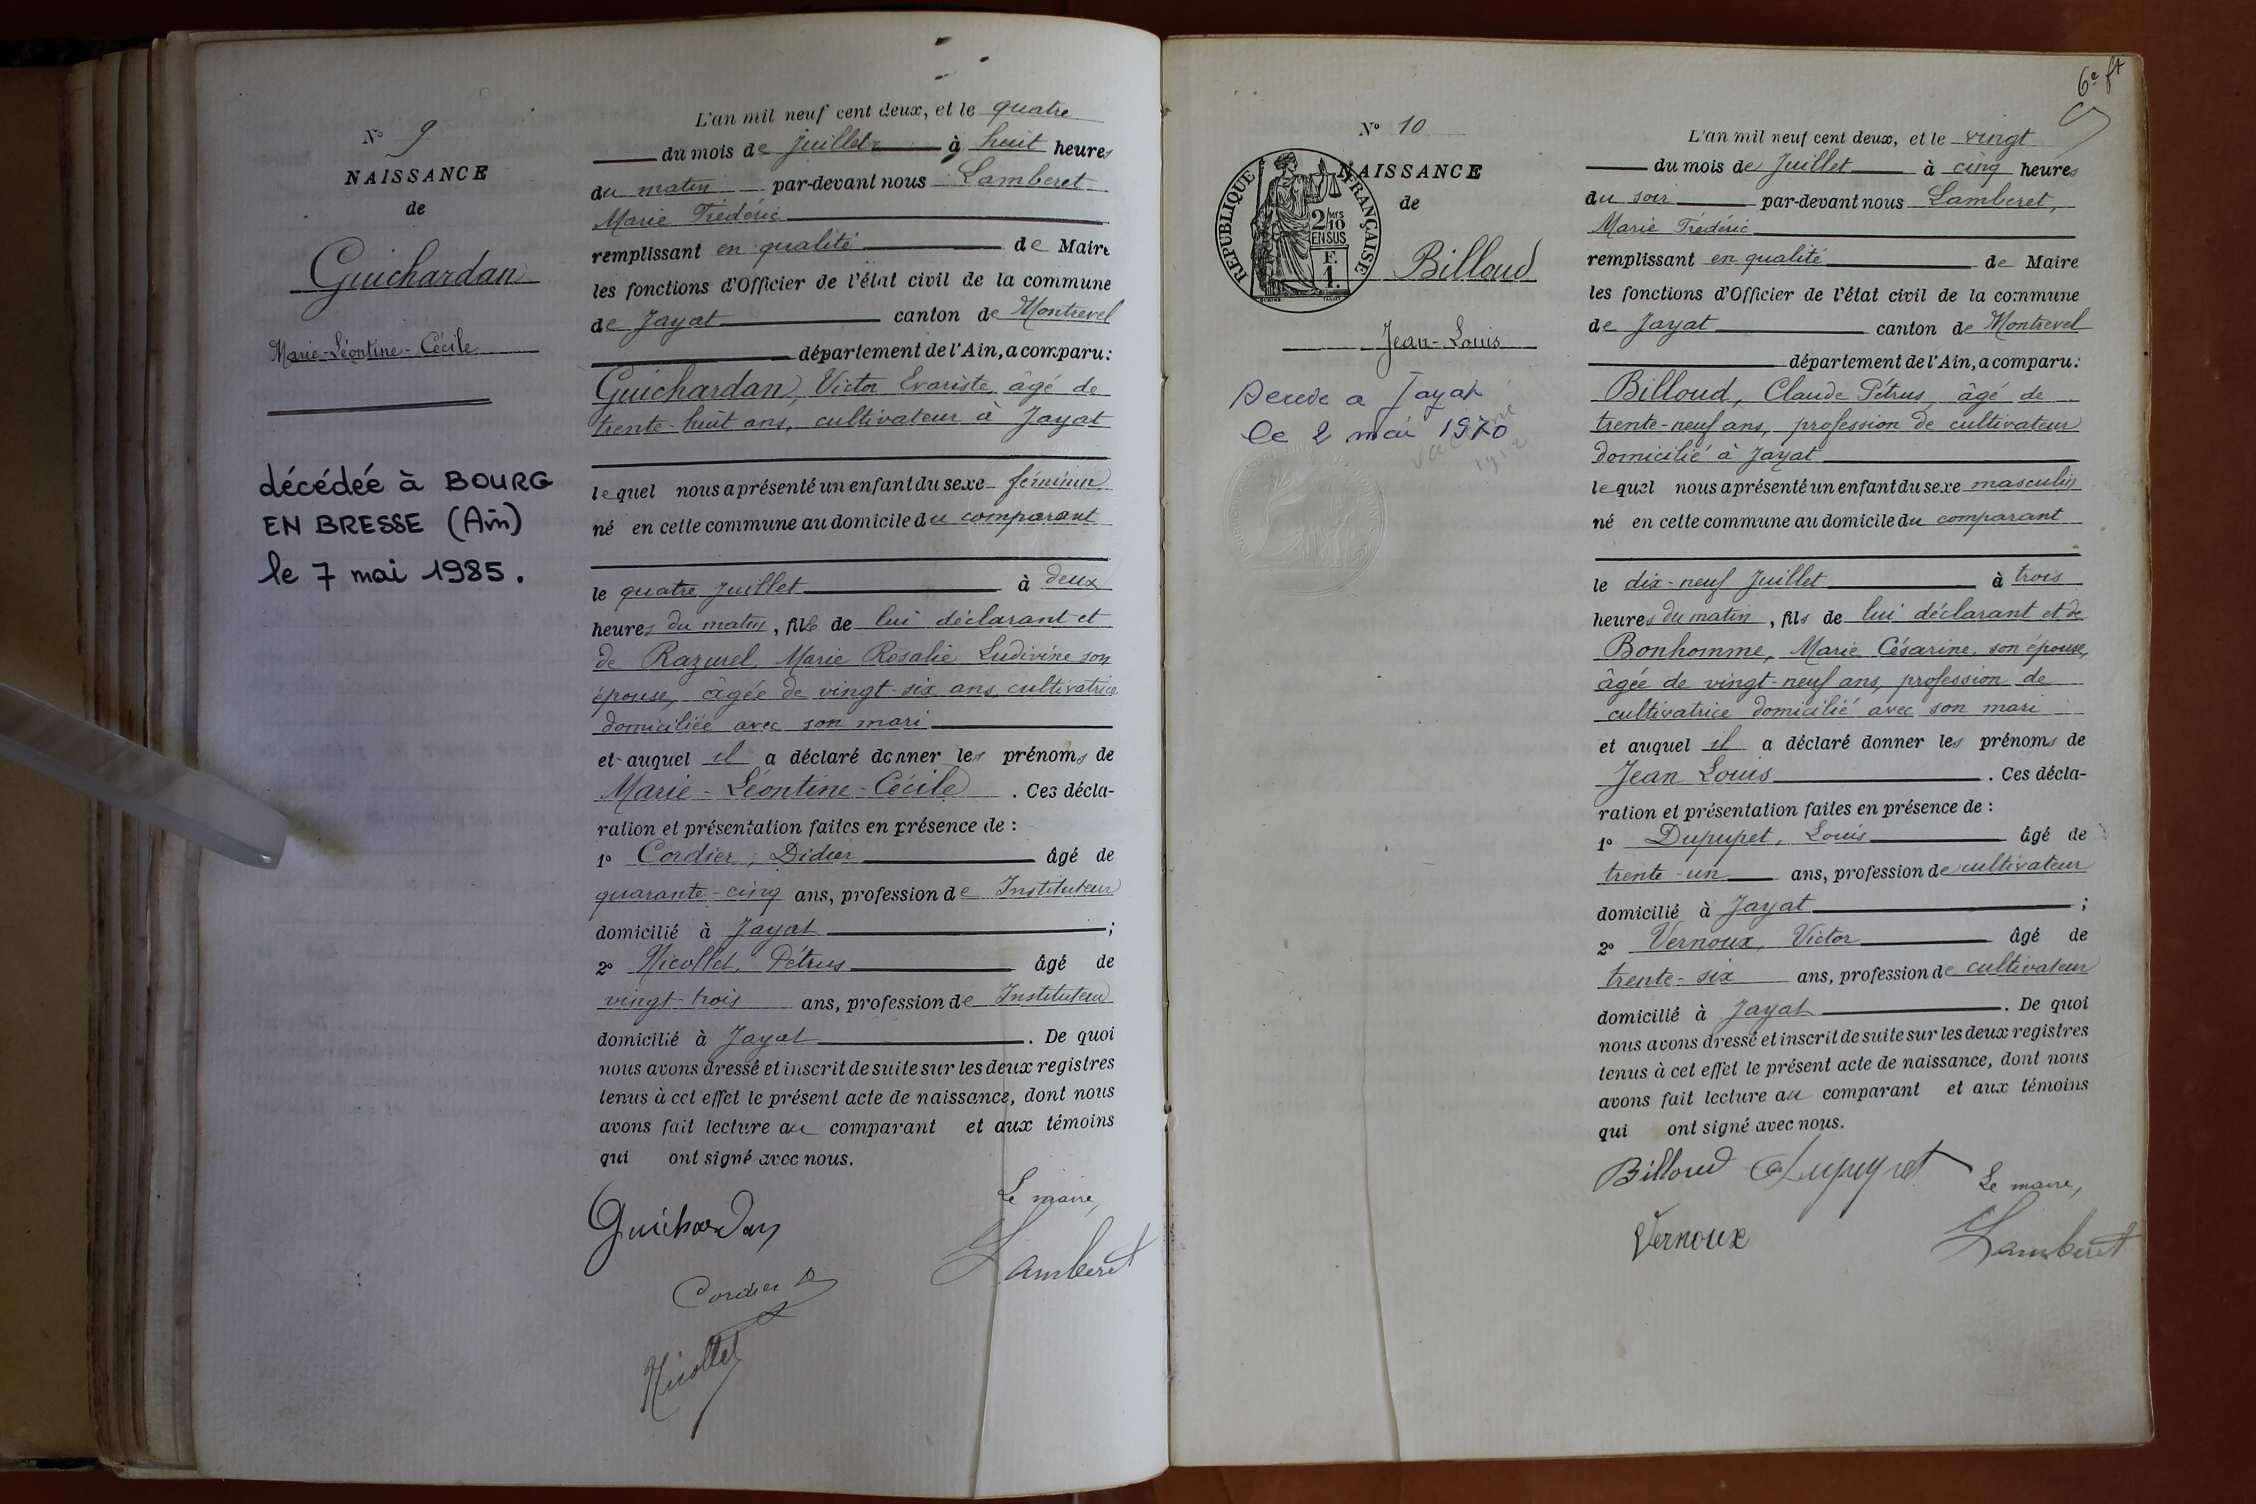 N° 9
NAISSANCE
de
Guichardan
Marie-Léontine-Cécile
décédée à BOURG
EN BRESSE (Ain)
le 7 mai 1985.
L'an mil neuf cent deux, et le quatre
du mois de Juillet à huit heures
du matin par-devant nous Lamberet
Marie Frédéric
remplissant en qualité de Maire
les fonctions d'Officier de l'état civil de la commune
de Jayat canton de Montrevel
département de l'Ain, a comparu:
Guichardan, Victor Evariste, âgé de
trente-huit ans, cultivateur à Jayat
lequel nous a présenté un enfant du sexe féminin
né en cette commune au domicile du comparant
le quatre Juillet à deux
heures du matin, fille de lui déclarant et
de Razurel, Marie Rosalie Ludivine son
épouse, âgée de vingt-six ans, cultivatrice
domiciliée avec son mari
et auquel il a déclaré donner les prénoms de
Marie-Léontine-Cécile. Ces décla-
ration et présentation faites en présence de :
1° Cordier, Didier âgé de
quarante-cinq ans, profession de Instituteur
domicilié à Jayat ;
2° Nicollet, Pétrus âgé de
vingt-trois ans, profession de Instituteur
domicilié à Jayat. De quoi
nous avons dressé et inscrit de suite sur les deux registres
tenus à cet effet le présent acte de naissance, dont nous
avons fait lecture au comparant et aux témoins
qui ont signé avec nous.
Guichardan
Le maire,
Lamberet
Cordier D
Nicollet
6e ft
N° 10
NAISSANCE
de
RÉPUBLIQUE FRANÇAISE
2/10
EN SUS
F.
1.
Billoud
Jean-Louis
Decede a Jayat
le 2 mai 1970
1912
L'an mil neuf cent deux, et le vingt
du mois de Juillet à cinq heures
du soir par-devant nous Lamberet,
Marie Frédéric
remplissant en qualité de Maire
les fonctions d'Officier de l'état civil de la commune
de Jayat canton de Montrevel
département de l'Ain, a comparu:
Billoud, Claude Pétrus, âgé de
trente-neuf ans, profession de cultivateur
domicilié à Jayat
lequel nous a présenté un enfant du sexe masculin
né en cette commune au domicile du comparant
le dix-neuf Juillet à trois
heures du matin, fils de lui déclarant et de
Bonhomme, Marie Césarine, son épouse,
âgée de vingt-neuf ans, profession de
cultivatrice domicilié avec son mari
et auquel il a déclaré donner les prénoms de
Jean Louis. Ces décla-
ration et présentation faites en présence de :
1° Dupupet, Louis âgé de
trente-un ans, profession de cultivateur
domicilié à Jayat ;
2° Vernoux, Victor âgé de
trente-six ans, profession de cultivateur
domicilié à Jayat. De quoi
nous avons dressé et inscrit de suite sur les deux registres
tenus à cet effet le présent acte de naissance, dont nous
avons fait lecture au comparant et aux témoins
qui ont signé avec nous.
Billoud Dupupet Le maire,
Vernoux Lamberet